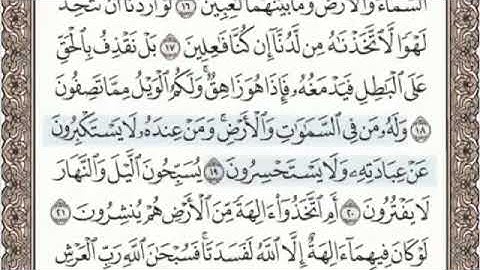 ٱلسَّمَآءَ وَٱلْأَرْضَ وَمَا بَيْنَهُمَا لَٰعِبِينَ ١٦ لَوْ أَرَدْنَآ أَن نَّتَّخِذَ
لَهْوًا لَّٱتَّخَذْنَٰهُ مِن لَّدُنَّآ إِن كُنَّا فَٰعِلِينَ ١٧ بَلْ نَقْذِفُ بِٱلْحَقِّ
عَلَى ٱلْبَٰطِلِ فَيَدْمَغُهُۥ فَإِذَا هُوَ زَاهِقٌ ۚ وَلَكُمُ ٱلْوَيْلُ مِمَّا تَصِفُونَ
١٨ وَلَهُۥ مَن فِى ٱلسَّمَٰوَٰتِ وَٱلْأَرْضِ ۚ وَمَنْ عِندَهُۥ لَا يَسْتَكْبِرُونَ
عَنْ عِبَادَتِهِۦ وَلَا يَسْتَحْسِرُونَ ١٩ يُسَبِّحُونَ ٱلَّيْلَ وَٱلنَّهَارَ
لَا يَفْتُرُونَ ٢٠ أَمِ ٱتَّخَذُوٓا۟ ءَالِهَةً مِّنَ ٱلْأَرْضِ هُمْ يُنشِرُونَ ٢١
لَوْ كَانَ فِيهِمَآ ءَالِهَةٌ إِلَّا ٱللَّهُ لَفَسَدَتَا ۚ فَسُبْحَٰنَ ٱللَّهِ رَبِّ ٱلْعَرْشِ